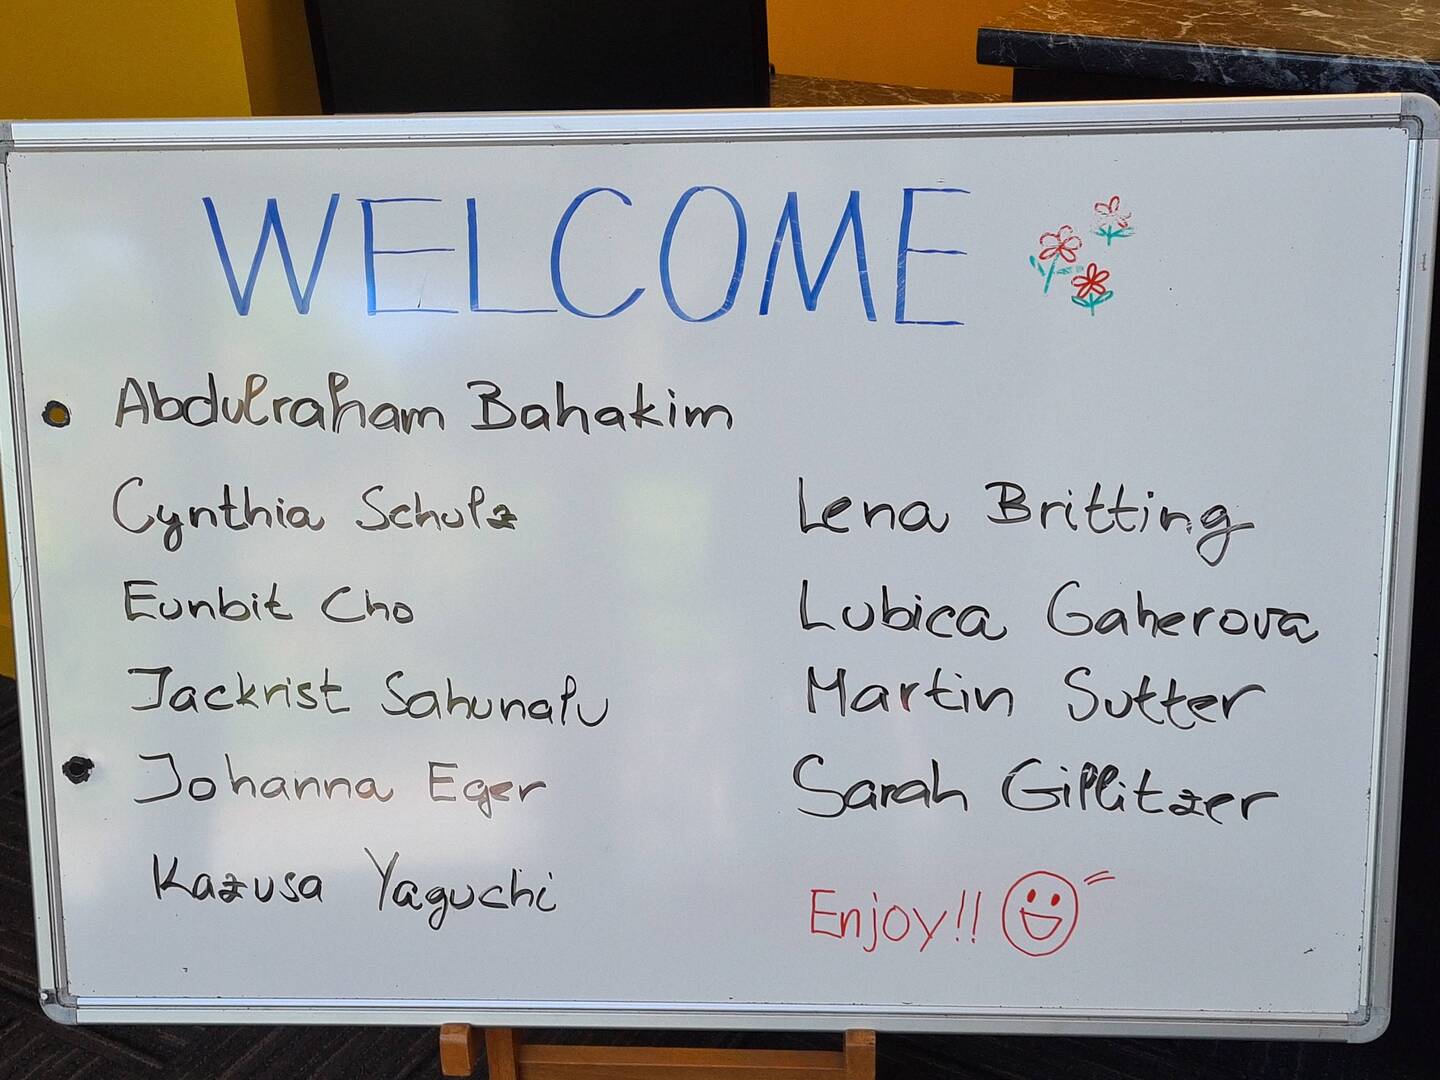 WELCOME
Abdulraham Bahakim
Cynthia Schulz
Eunbit Cho
Jackrist Sahunalu
Johanna Eger
Kazusa Yaguchi
Lena Britting
Lubica Gaherova
Martin Sutter
Sarah Gillitzer
Enjoy!!